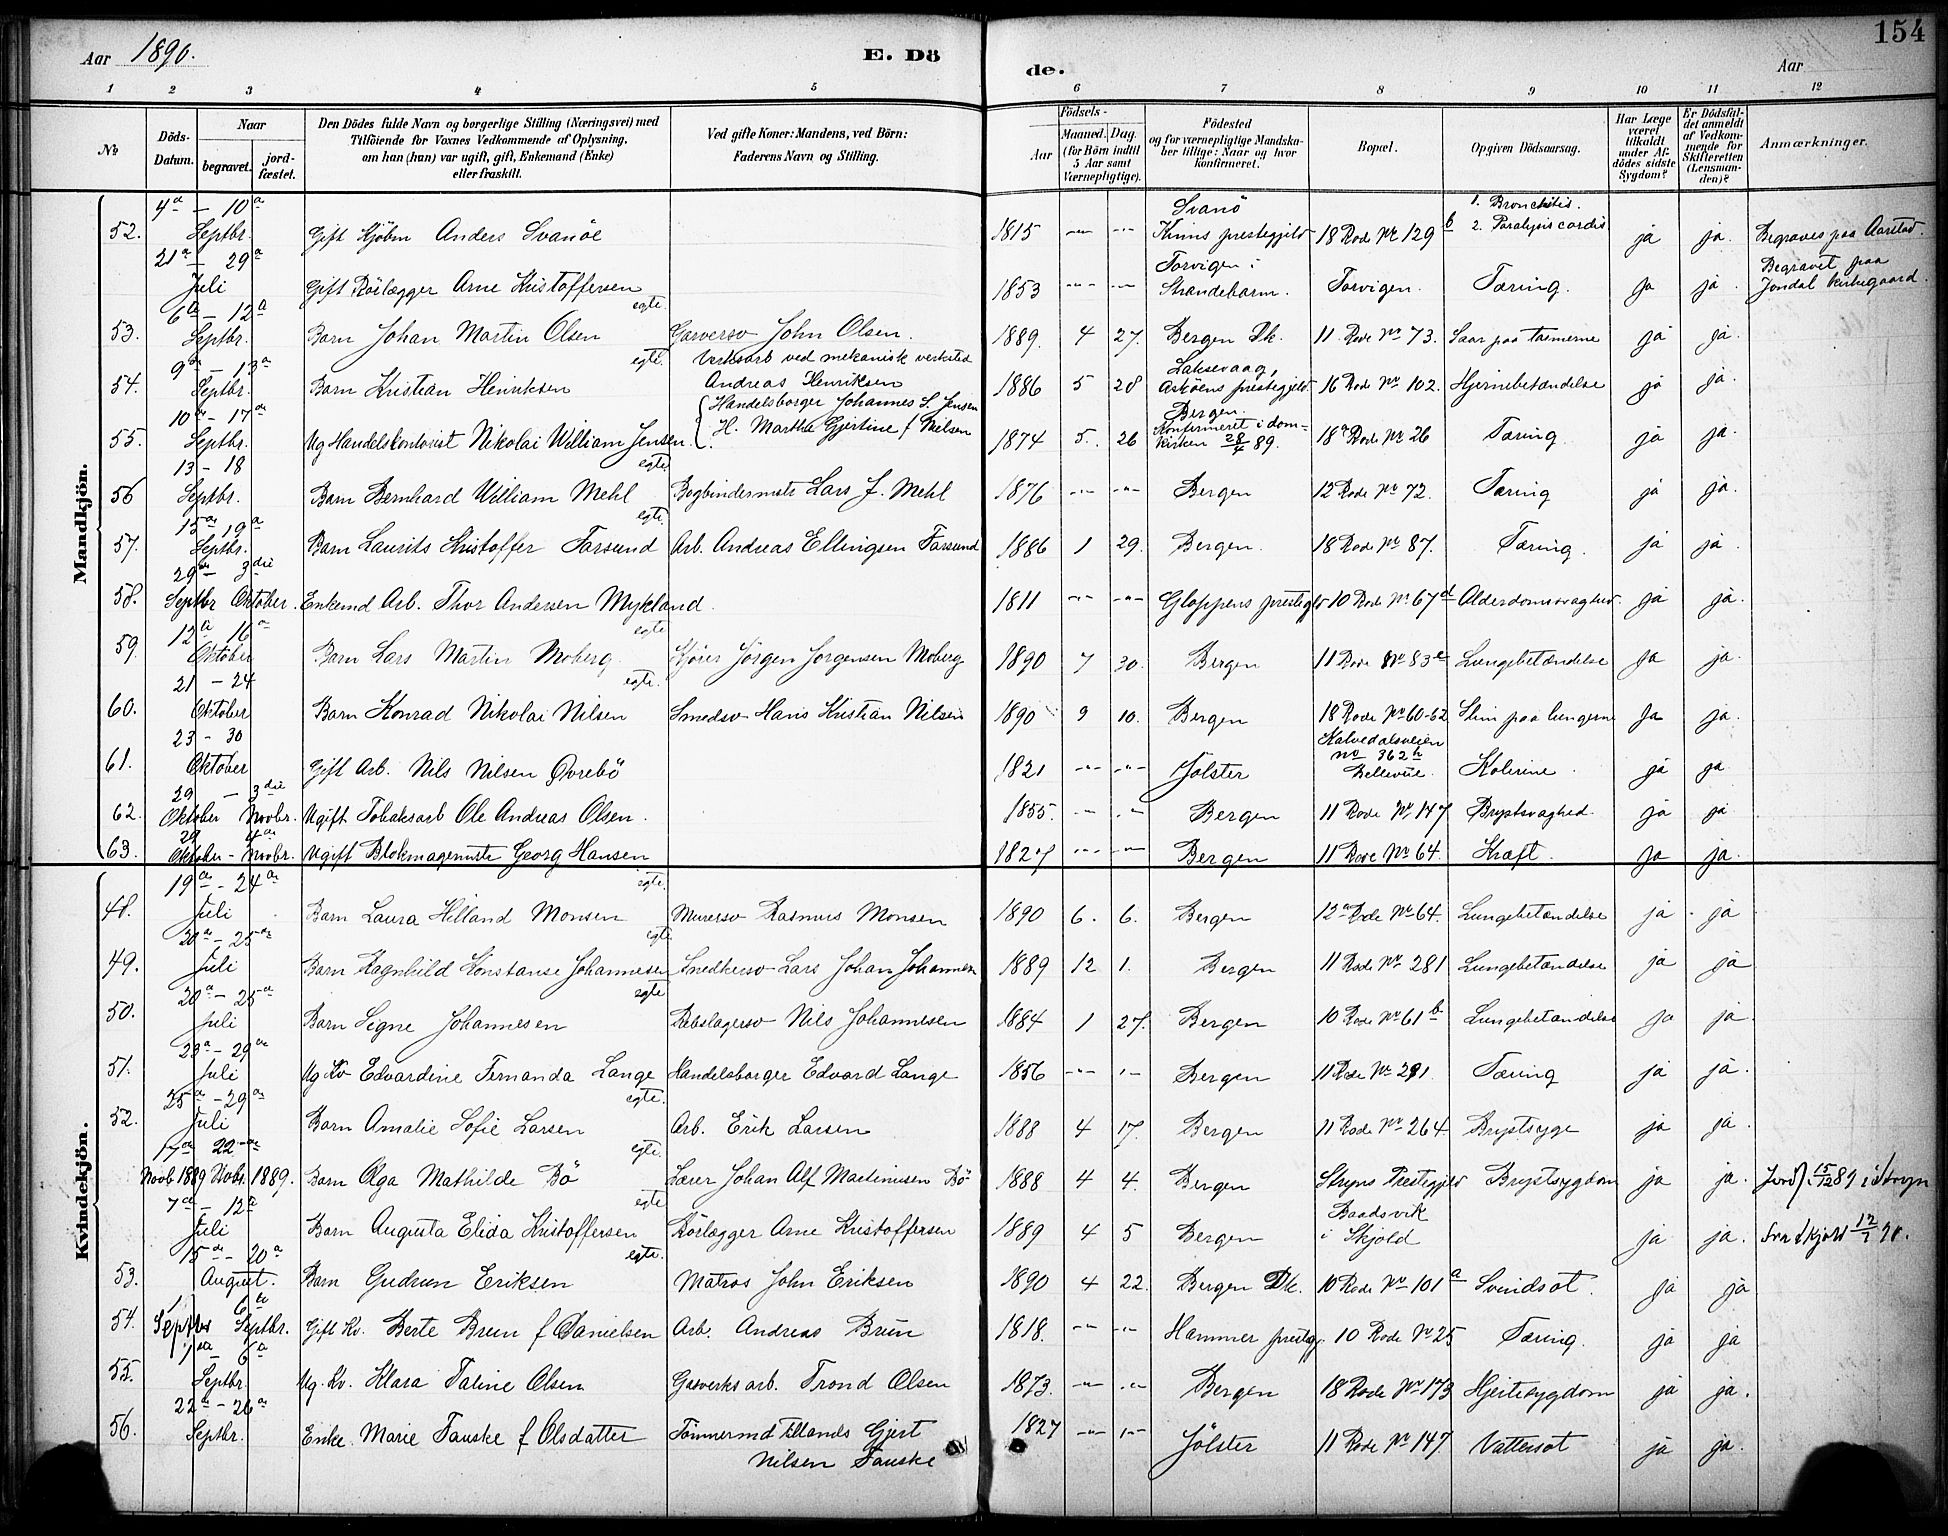 154
Aar 1890. E. Dö de. Aar
1 2 3 4 5 6 7 8 9 10 11 12
№
Döds-Datum.
Naar
begravet.
jord-fæstet.
Den Dödes fulde Navn og borgerlige Stilling (Næringsvei) med
Tilföiende for Voxnes Vedkommende af Oplysning,
om han (hun) var ugift, gift, Enkemand (Enke)
eller fraskilt.
Ved gifte Koner: Mandens, ved Börn:
Faderens Navn og Stilling.
Födsels-
Aar
Maaned. Dag.
(for Börn indtil
5 Aar samt
Værnepligtige).
Födested
og for værnepligtige Mandska-
ber tillige: Naar og hvor
konfirmeret.
Bopæl.
Opgiven Dödsaarsag.
Har Læge
været
tilkaldt
under Af-
dödes sidste
Sygdom?
Er Dödsfal-
det anmeldt
af Vedkom-
mende for
Skifteretten
(Lensman-
den)?
Anmærkninger.
Mandkjön.
4de – 10de Svanö 1. Bronchitis.
52. Septbr. Gift Kjöbm Anders Svanöe 1815 -"- -"- Kinns prestegjeld 18 Rode № 129 b 2. Paralysis cordis ja ja. Begraves paa Aarstad.
21de – 29de Torvigen i Begravet paa
Juli Gift Rörlægger Arne Kristoffersen 1853 -"- -"- Strandebarm. Torvigen. Tæring. ja ja. Jondal kirkegaard.
6te – 12te egte.
53. Septbr. Barn Johan Martin Olsen Garversv John Olsen. 1889. 4 27. Bergen Dk. 11 Rode № 73. Saar paa tarmerne ja ja.
9de – 13de egte. Verksarb ved mekanisk verksted Laksevaag,
54. Septbr. Barn Kristian Henriksen Andreas Henriksen 1886 5 28 Askøens prestegjeld 16 Rode № 102. Hjernebetændelse ja ja.
10de – 17de Handelsborger Johannes S. Jensen Bergen. Konfirmeret i dom-
55. Septbr. Ug Handelskontorist Nikolai William Jensen H. Martha Gjertine f Nilsen 1874 5. 26 kirken 28/4 89. 18a Rode № 26 Tæring ja ja.
13 – 18 egte.
56 Septbr. Barn Bernhard William Mehl Bogbindermstr Lars J. Mehl 1876 -"- -"- Bergen 12 Rode № 72. Tæring ja ja.
15de 19de egte.
57. Septbr. Barn Laurits Kristoffer Farsund Arb. Andreas Ellingsen Farsund 1886 1 29. Bergen. 18 Rode № 87. Tæring. ja ja.
29de – 3die
58. Septbr Oktober. Enkemd Arb. Thor Andersen Mykland. 1811 -"- -"- Gloppens prestegjld 10 Rode № 67 d Alderdomssvaghed. ja ja.
12te 16de egte
59. Oktober Barn Lars Martin Moberg Kjörer Jörgen Jorgensen Moberg 1890 7 30. Bergen 11 Rode № 83 e Lungebetændelse ja ja.
21 – 24 egte.
60. Oktober Barn Konrad Nikolai Nilsen Smedsv Hans Kristian Nilsen 1890 9 10. Bergen 18 Rode № 60-62 Slim paa lungerne ja ja.
23 – 30 Kalvedalsveien
61. Oktober Gift Arb. Nils Nilsen Øvrebö 1821 -"- -"- Jölster no 362 h Bellevue. Kolerine. ja ja
29 – 3die
62. Oktober Novbr. Ugift Tobaksarb Ole Andreas Olsen. 1855. -"- -"- Bergen 11 Rode № 147 Brystsvaghed. ja ja
29 4de
63. Oktober – Novbr. Ugift Blokmagermstr Georg Hansen 1827 -"- -"- Bergen 11 Rode № 64. Kræft. ja ja.
Kvindekjön.
19de – 24de egte.
48. Juli Barn Laura Hilland Monsen Murersv Rasmus Monsen 1890 6. 6. Bergen 12a Rode № 64. Lungebetændelse ja ja
20de – 25de egte.
49. Juli Barn Ragnhild Konstanse Johannesen Snedkersv Lars Johan Johannesen 1889 12 1. Bergen 11 Rode № 281 Lungebetændelse ja ja
20de – 25de egte
50. Juli Barn Signe Johannesen Rebslagersv Nils Johannesen 1884 1 27. Bergen 10 Rode № 61 b Lungebetændelse ja ja
23de – 29de
51. Juli Ug Kv Edvardine Fernanda Lange Handelsborger Edvard Lange 1856 -"- -"- Bergen 11 Rode № 291. Tæring ja ja.
25de – 29de egte.
52. Juli Barn Amalie Sofie Larsen Arb. Erik Larsen 1888 4 17. Bergen 11 Rode № 264. Brystsyge ja ja.
17de 22de egte.
Novb 1889 Novbr. 1889. Barn Olga Mathilde Bö Lærer Johan Alf Martinusen Bö 1888 4 4. Bergen Stryns Prestegjeld Brystsygdom ja ja. Jordf 15/12 89 i Stryn
7de – 12te egte Baadsvik
Juli Barn Augusta Elida Kristoffersen Rörlægger Arne Kristoffersen 1889 4 5 Bergen i Skjold ja ja. Fra Skjold 12/7 90.
15de – 20de egte.
53. August. Barn Gudrun Eriksen Matros John Eriksen 1890 4 22. Bergen Dk. 10 Rode № 101 a Svindsot. ja ja
6te
54. Septbr Septbr. Gift Kv. Berte Brun f Danielsen Arb. Andreas Brun 1818. -"- -"- Hammer prestegj. 10 Rode № 25 Tæring. ja ja
1ste 6te
55. Septbr. Ug. Kv. Klara Taline Olsen Gasverksarb. Trond Olsen 1873. -"- -"- Bergen 18 Rode № 173 Hjertesygdom ja ja.
22de – 26de
56. Septbr. Enke Marie Fauske f Olsdatter Tömmermd Gjert 1827 -"- -"- Jölster 11 Rode № 147. Vattersot ja ja.
Nilsen Fauske